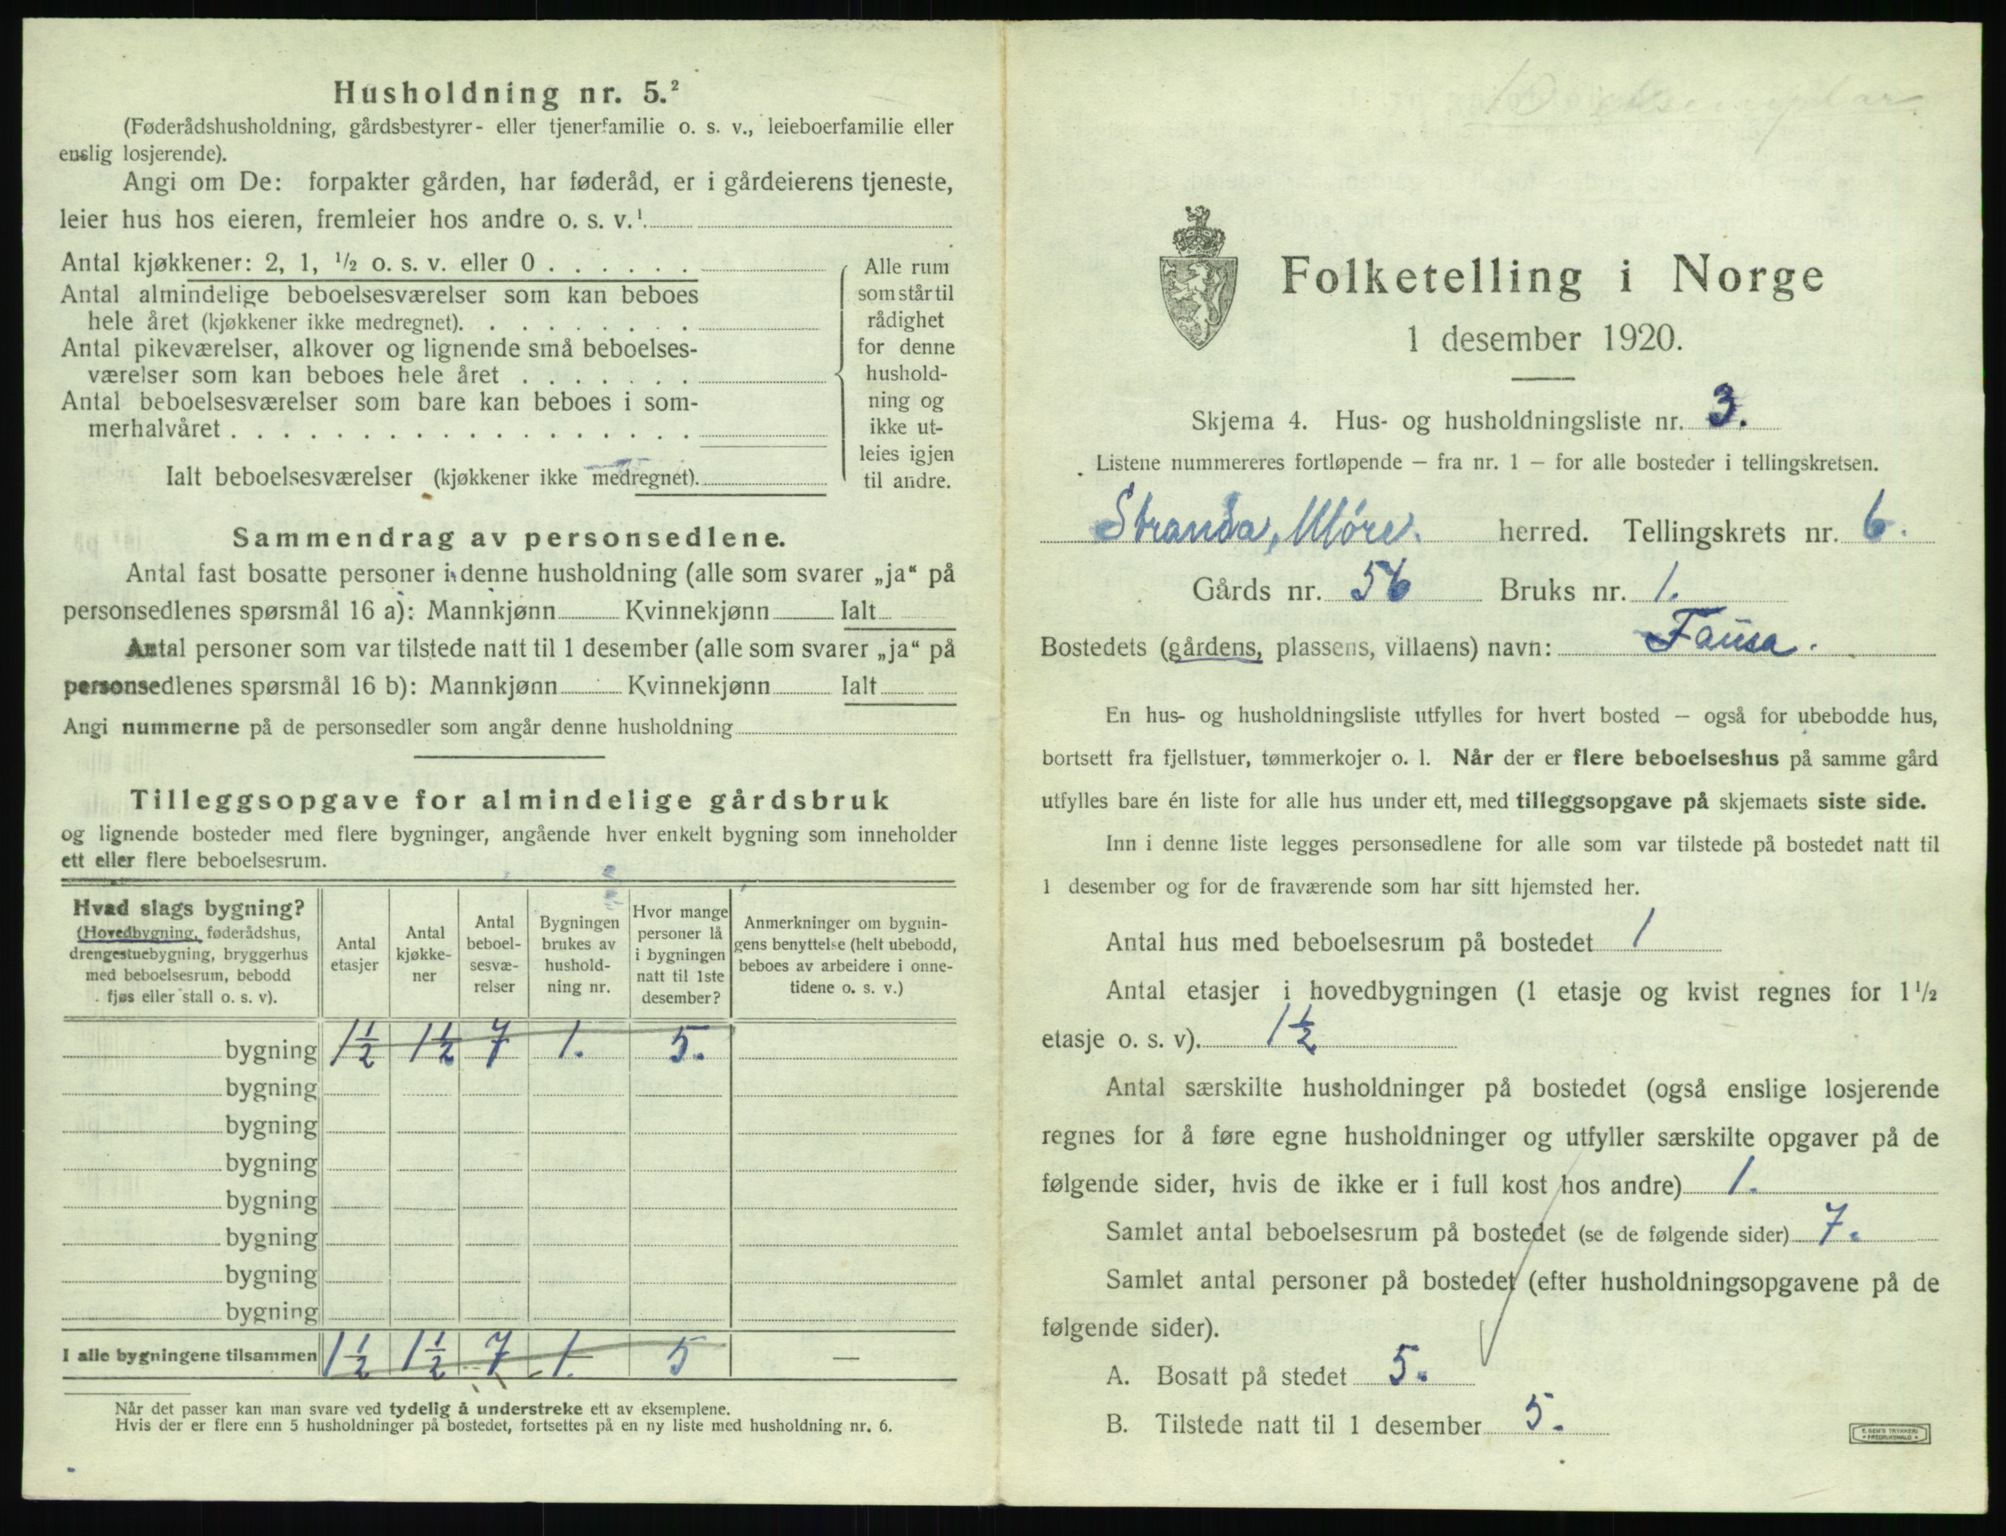 Husholdning nr. 5.²
(Føderådshusholdning, gårdsbestyrer- eller tjenerfamilie o. s. v., leieboerfamilie eller
enslig losjerende).
Angi om De: forpakter gården, har føderåd, er i gårdeierens tjeneste,
leier hus hos eieren, fremleier hos andre o. s. v.¹
Antal kjøkkener: 2, 1, ½ o. s. v. eller 0 . . . . . .
Antal almindelige beboelsesværelser som kan beboes
hele året (kjøkkener ikke medregnet). . . . . . . . .
Antal pikeværelser, alkover og lignende små beboelses-
værelser som kan beboes hele året . . . . . . .
Antal beboelsesværelser som bare kan beboes i som-
merhalvåret . . . . . . . . . . . . . . . . . .
Ialt beboelsesværelser (kjøkkener ikke medregnet).
Alle rum
som står til
rådighet
for denne
hushold-
ning og
ikke ut-
leies igjen
til andre.
Sammendrag av personsedlene.
Antal fast bosatte personer i denne husholdning (alle som svarer „ja“ på
personsedlenes spørsmål 16 a): Mannkjønn Kvinnekjønn Ialt
Antal personer som var tilstede natt til 1 desember (alle som svarer „ja“ på
personsedlenes spørsmål 16 b): Mannkjønn Kvinnekjønn Ialt
Angi nummerne på de personsedler som angår denne husholdning
Tilleggsopgave for almindelige gårdsbruk
og lignende bosteder med flere bygninger, angående hver enkelt bygning som inneholder
ett eller flere beboelsesrum.
Hvad slags bygning?
(Hovedbygning, føderådshus,
drengestuebygning, bryggerhus
med beboelsesrum, bebodd
fjøs eller stall o. s. v).
Antal
etasjer
Antal
kjøkke-
ner
Antal
beboel-
sesvæ-
relser
Bygningen
brukes av
hushold-
ning nr.
Hvor mange
personer lå
i bygningen
natt til 1ste
desember?
Anmerkninger om bygnin-
gens benyttelse (helt ubebodd,
beboes av arbeidere i onne-
tidene o. s. v.)
bygning 1½ 1½ 7 1. 5.
bygning
bygning
bygning
bygning
bygning
bygning
bygning
I alle bygningene tilsammen 1½ 1½ 7 1. 5 —
Når det passer kan man svare ved tydelig å understreke ett av eksemplene.
Hvis der er flere enn 5 husholdninger på bostedet, fortsettes på en ny liste med husholdning nr. 6.
Folketelling i Norge
1 desember 1920.
Skjema 4. Hus- og husholdningsliste nr. 3.
Listene nummereres fortløpende – fra nr. 1 – for alle bosteder i tellingskretsen.
Stranda, Møre. herred. Tellingskrets nr. 6.
Gårds nr. 56 Bruks nr. 1.
Bostedets (gårdens, plassens, villaens) navn: Fausa.
En hus- og husholdningsliste utfylles for hvert bosted – også for ubebodde hus,
bortsett fra fjellstuer, tømmerkojer o. l. Når der er flere beboelseshus på samme gård
utfylles bare én liste for alle hus under ett, med tilleggsopgave på skjemaets siste side.
Inn i denne liste legges personsedlene for alle som var tilstede på bostedet natt til
1 desember og for de fraværende som har sitt hjemsted her.
Antal hus med beboelsesrum på bostedet 1
Antal etasjer i hovedbygningen (1 etasje og kvist regnes for 1½
etasje o. s. v). 1½
Antal særskilte husholdninger på bostedet (også enslige losjerende
regnes for å føre egne husholdninger og utfyller særskilte opgaver på de
følgende sider, hvis de ikke er i full kost hos andre) 1.
Samlet antal beboelsesrum på bostedet (se de følgende sider) 7.
Samlet antal personer på bostedet (efter husholdningsopgavene på de
følgende sider).
A. Bosatt på stedet 5.
B. Tilstede natt til 1 desember 5.